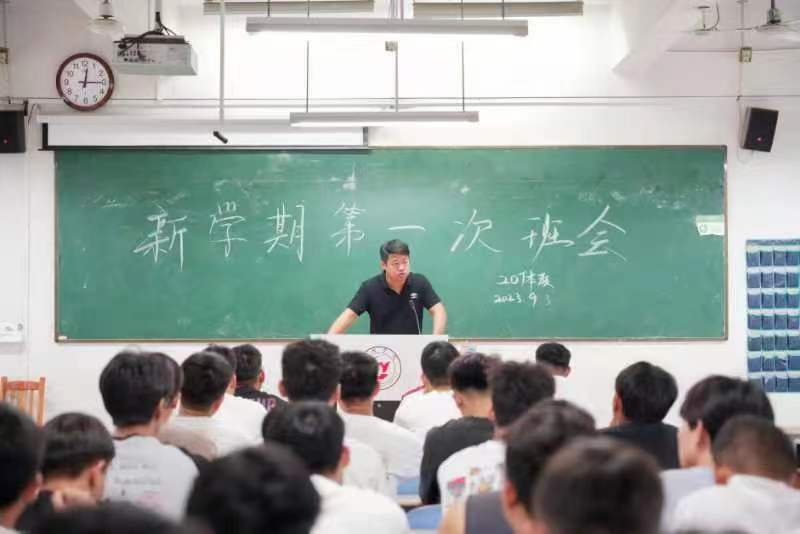 新学期第一次班会
20体教
2023.9.3